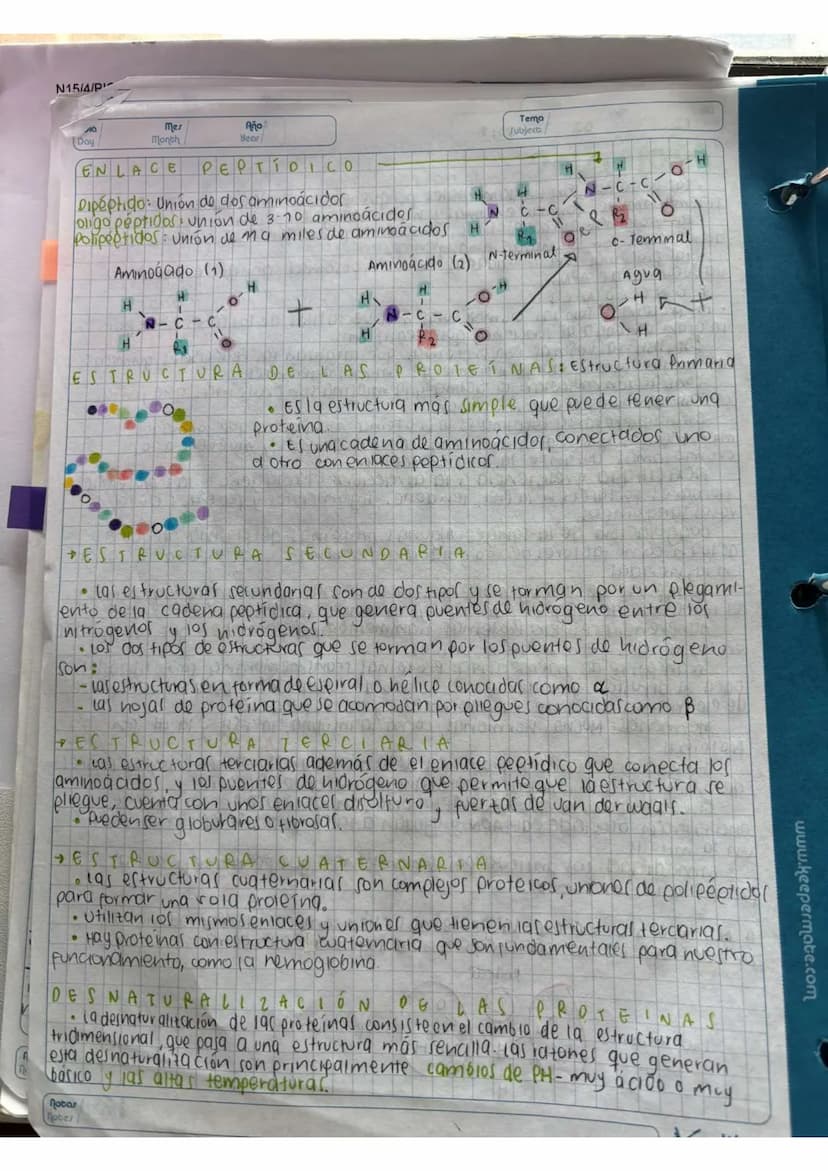 N15/4/BI
Day
Mes
Month
Año
Year
Tema
Subject
ENLACE PEPTÍDICO
Dipéptido: Unión de dos aminoácidos
oligo péptidos: unión de 3-10 aminoácidos
Polipéptidos: unión de 11 a miles de aminoácidos
H H N H C R1 C O H N C R2 C O H O
N-terminal
C-Terminal
Aminoácido (1)
Aminoácido (2)
Agua
H H N - C - C O H H R1 O
+
H H N - C - C O - H H R2 O
O H H
+
ESTRUCTURA DE LAS PROTEÍNAS: Estructura Primaria
• Es la estructura más simple que puede tener una
proteína.
• Es una cadena de aminoácidos, conectados uno
a otro con enlaces peptídicos.
→ ESTRUCTURA SECUNDARIA
• Las estructuras secundarias son de dos tipos y se forman por un plegami-
ento de la cadena peptídica, que genera puentes de hidrógeno entre los
nitrógenos y los hidrógenos.
• Los dos tipos de estructuras que se forman por los puentes de hidrógeno
son:
- las estructuras en forma de espiral o hélice conocidas como α
- las hojas de proteína que se acomodan por pliegues conocidas como β
→ ESTRUCTURA TERCIARIA
• Las estructuras terciarias además de el enlace peptídico que conecta los
aminoácidos, y los puentes de hidrógeno que permite que la estructura se
pliegue, cuenta con unos enlaces disulfuro, y fuerzas de van der waals.
• Pueden ser globulares o fibrosas.
→ ESTRUCTURA CUATERNARIA
• Las estructuras cuaternarias son complejos proteicos, uniones de polipéptidos
para formar una sola proteína.
• Utilizan los mismos enlaces y uniones que tienen las estructuras terciarias.
• Hay proteínas con estructura cuaternaria que son fundamentales para nuestro
funcionamiento, como la hemoglobina.
DESNATURALIZACIÓN DE LAS PROTEINAS
• La desnaturalización de las proteínas consiste en el cambio de la estructura
tridimensional, que pasa a una estructura más sencilla. Las razones que generan
esta desnaturalización son principalmente cambios de PH - muy ácido o muy
básico y las altas temperaturas.
Notas
Notes
www.keepermate.com